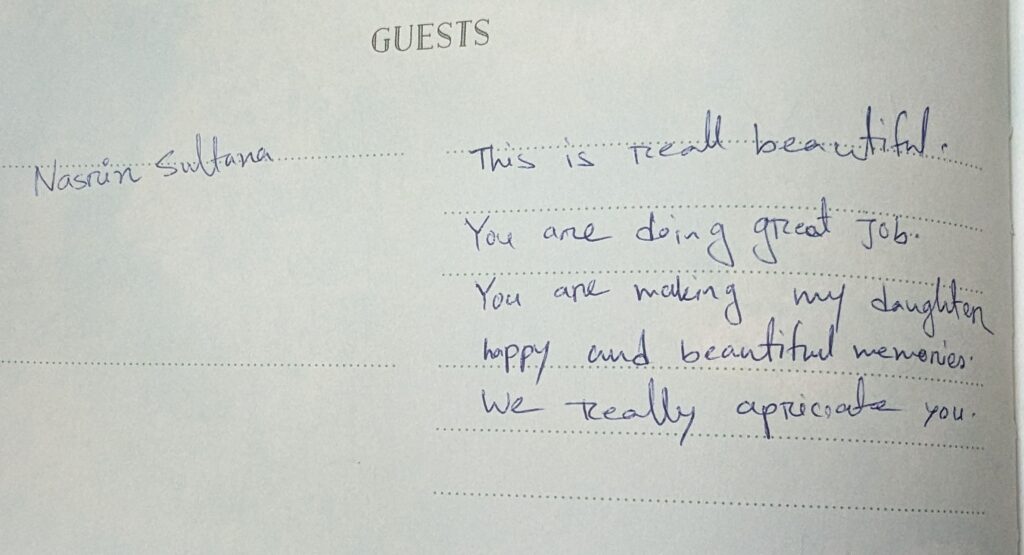 GUESTS
Nasrin Sultana
This is reall beautiful.
You are doing great Job.
You are making my daughter
happy and beautiful memories.
We really apriciate you.